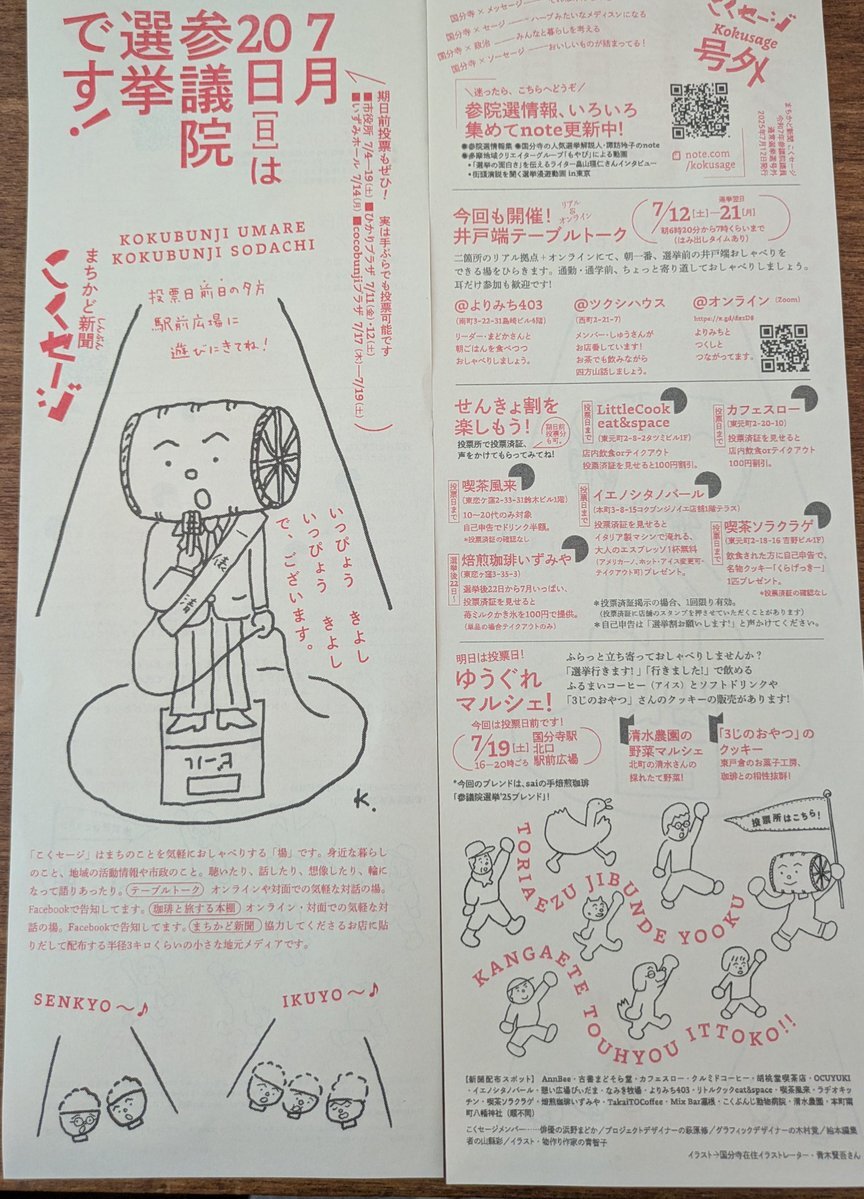 7月
20日[日]は
参議院
選挙
です!
期日前投票もぜひ! 実は手ぶらでも投票可能です
■市役所 7/4―19(土) ■ひかりプラザ 7/11(金)・12(土)
■いずみホール 7/14(月) ■cocobunjiプラザ 7/17(木)―7/19(土)
KOKUBUNJI UMARE
KOKUBUNJI SODACHI
まちかど新聞
しんぶん
こくセージ
投票日前日の夕方
駅前広場に
遊びにきてね!
俵
清
いっぴょう きよし
いっぴょう きよし
で、ございます。
K.
「こくセージ」はまちのことを気軽におしゃべりする「場」です。身近な暮らし
のこと、地域の活動情報や市政のこと。聴いたり、話したり、想像したり、輪に
なって語りあったり。テーブルトーク オンラインや対面での気軽な対話の場。
Facebookで告知してます。珈琲と旅する本棚 オンライン・対面での気軽な対
話の場。Facebookで告知してます。まちかど新聞 協力してくださるお店に貼
りだして配布する半径3キロくらいの小さな地元メディアです。
SENKYO〜♪
IKUYO〜♪
国分寺 × メッセージ
国分寺 × セージ ハーブみたいなメディスンになる
国分寺 × 政治 みんなと暮らしを考える
国分寺 × ソーセージ おいしいものが詰まってる!
こくセージ
Kokusage
号外
まちかど新聞 こくセージ
令和7年参議院議員
通常選挙号外
2025年7月12日発行
\迷ったら、こちらへどうぞ/
参院選情報、いろいろ
集めてnote更新中!
●参院選情報集 ●国分寺の人気選挙解説人・諏訪玲子のnote
●多摩地域クリエイターグループ「もやび」による動画
・「選挙の面白さ」を伝えるライター畠山理仁さんインタビュー
・街頭演説を聞く選挙漫遊動画 in東京
note.com
/kokusage
今回も開催!
リアル
&
オンライン
井戸端テーブルトーク
選挙翌日
7/12[土]―21[月]
朝6時20分から7時くらいまで
(はみ出しタイムあり)
二箇所のリアル拠点+オンラインにて、朝一番、選挙前の井戸端おしゃべりを
できる場をひらきます。通勤・通学前、ちょっと寄り道しておしゃべりしましょう。
耳だけ参加も歓迎です!
@よりみち403
(南町3-22-31島崎ビル4階)
リーダー・まどかさんと
朝ごはんを食べつつ
おしゃべりしましょう。
@ツクシハウス
(西町2-21-7)
メンバー・しゅうさんが
お店番しています!
お茶でも飲みながら
四方山話しましょう。
@オンライン (Zoom)
よりみちと
つくしと
つながってます。
せんきょ割を
楽しもう!
期日前
投票分
も可。
投票所で投票済証、
声をかけてもらってみてね!
投票日まで
LittleCook
eat&space
(東元町2-8-2タツミビル1F)
店内飲食orテイクアウト
投票済証を見せると100円割引。
投票日まで
カフェスロー
(東元町2-20-10)
投票済証を見せると
店内飲食orテイクアウト
100円割引。
投票日まで
喫茶風来
(東恋ケ窪2-33-31鈴木ビル1階)
10〜20代のみ対象
自己申告でドリンク半額。
*投票済証の確認なし
投票日まで
イエノシタノバール
(本町3-8-15コクブンジノイエ店舗1階テラス)
投票済証を見せると
イタリア製マシンで淹れる、
大人のエスプレッソ1杯無料
(アメリカーノ、ホット・アイス変更可・
テイクアウト可)プレゼント。
投票日まで
喫茶ソラクラゲ
(東元町2-18-16 吉野ビル1F)
飲食された方に自己申告で、
名物クッキー「くらげっきー」
1匹プレゼント。
*投票済証の確認なし
選挙後22日〜
焙煎珈琲いずみや
(東恋ケ窪3-35-3)
選挙後22日から7月いっぱい、
投票済証を見せると
苺ミルクかき氷を100円で提供。
(単品の場合テイクアウトのみ)
*投票済証掲示の場合、1回限り有効。
(投票済証に店舗のスタンプを押させていただくことがあります)
*自己申告は「選挙割お願いします!」と声かけてください。
明日は投票日!
ゆうぐれ
マルシェ!
ふらっと立ち寄っておしゃべりしませんか?
「選挙行きます!」「行きました!」で飲める
ふるまいコーヒー(アイス)とソフトドリンクや
「3じのおやつ」さんのクッキーの販売があります!
今回は投票日前です!
7/19[土]
16―20時ごろ
国分寺駅
北口
駅前広場
清水農園の
野菜マルシェ
北町の清水さんの
採れたて野菜!
「3じのおやつ」の
クッキー
東戸倉のお菓子工房、
珈琲との相性抜群!
*今回のブレンドは、saiの手焙煎珈琲
「参議院選挙'25ブレンド」!
投票所はこちら!
TORIAEZU JIBUNDE YOOKU
KANGAETE TOUHYOU ITTOKO!!
【新聞配布スポット】 AnnBee・古書まどそら堂・カフェスロー・クルミドコーヒー・胡桃堂喫茶店・OCUYUKI
・イエノシタノバール・憩い広場ぴいだま・なみき牧場・よりみち403・リトルクックeat&space・喫茶風来・ラヂオキッ
チン・喫茶ソラクラゲ・焙煎珈琲いずみや・TakaiTOCoffee・Mix Bar薫根・こくぶんじ動物病院・清水農園・本町南
町八幡神社(順不同)
こくセージメンバー……俳優の浜野まどか/プロジェクトデザイナーの萩原修/グラフィックデザイナーの木村寛/絵本編集
者の山縣彩/イラスト・物作り作家の青智子
イラスト→国分寺在住イラストレーター・青木賢吾さん